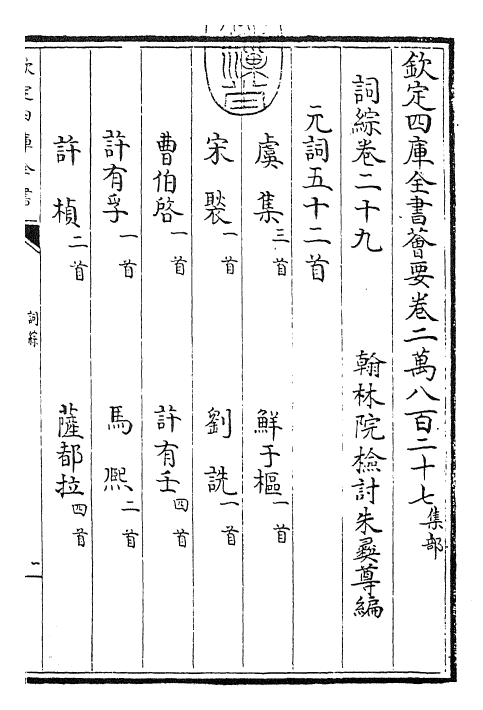 欽定四庫全書薈要卷二萬八百二十七集部
詞綜卷二十九　翰林院檢討朱彝尊編
元詞五十二首
虞集三首　鮮于樞一首
宋褧一首　劉詵一首
曹伯啓一首　許有壬四首
許有孚一首　馬熙二首
許楨二首　薩都拉四首
欽定四庫全書
詞綜
二